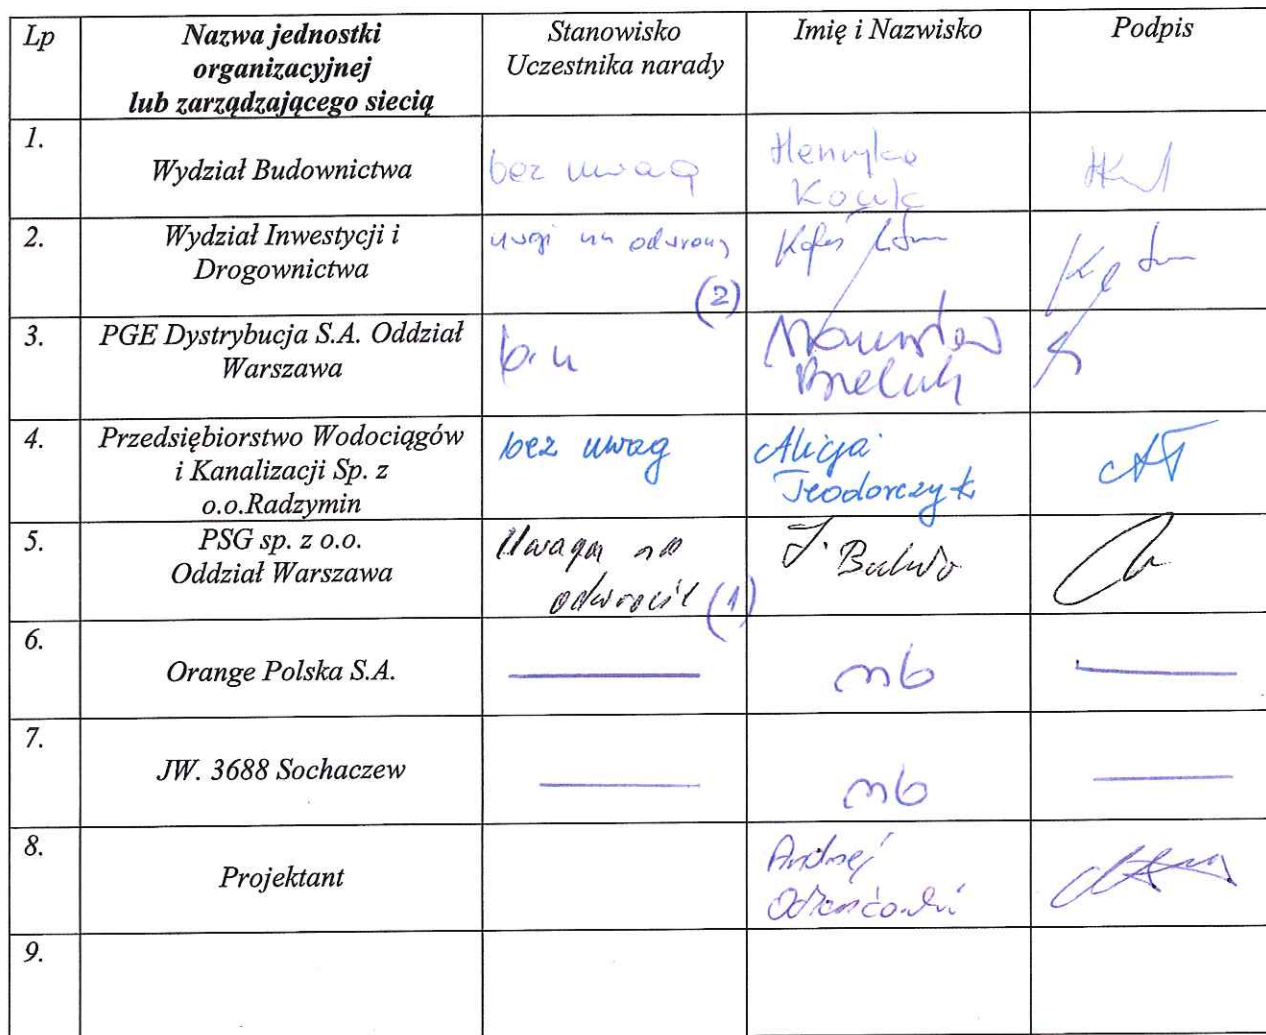 Lp
Nazwa jednostki
organizacyjnej
lub zarządzającego siecią
Stanowisko
Uczestnika narady
Imię i Nazwisko
Podpis
1.
Wydział Budownictwa
bez uwag
Henryka
2.
Wydział Inwestycji i
Drogownictwa
uwagi na odwrocie
(2)
3.
PGE Dystrybucja S.A. Oddział
Warszawa
b.u
4.
Przedsiębiorstwo Wodociągów
i Kanalizacji Sp. z
o.o.Radzymin
bez uwag
Alicja
Teodorczyk
AT
5.
PSG sp. z o.o.
Oddział Warszawa
Uwaga na
odwrocie (1)
J.
6.
Orange Polska S.A.
nb
7.
JW. 3688 Sochaczew
nb
8.
Projektant
Andrzej
9.